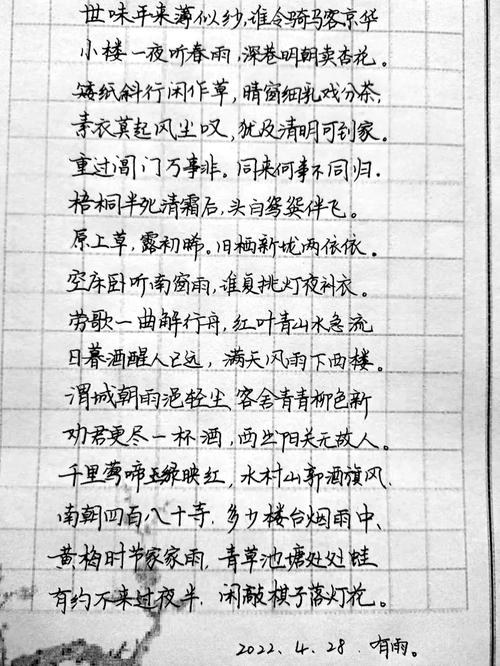 世味年来薄似纱,谁令骑马客京华
小楼一夜听春雨,深巷明朝卖杏花。
矮纸斜行闲作草,晴窗细乳戏分茶;
素衣莫起风尘叹,犹及清明可到家。
重过阊门万事非。同来何事不同归.
梧桐半死清霜后,头白鸳鸯伴飞。
原上草,露初晞。旧栖新垅两依依。
空床卧听南窗雨,谁复挑灯夜补衣。
劳歌一曲解行舟,红叶青山水急流
日暮酒醒人已远,满天风雨下西楼。
渭城朝雨浥轻尘 客舍青青柳色新
劝君更尽一杯酒,西出阳关无故人。
千里莺啼绿映红,水村山郭酒旗风.
南朝四百八十寺.多少楼台烟雨中、
黄梅时节家家雨,青草池塘处处蛙
有约不来过夜半.闲敲棋子落灯花。
2022.4.28.有雨。